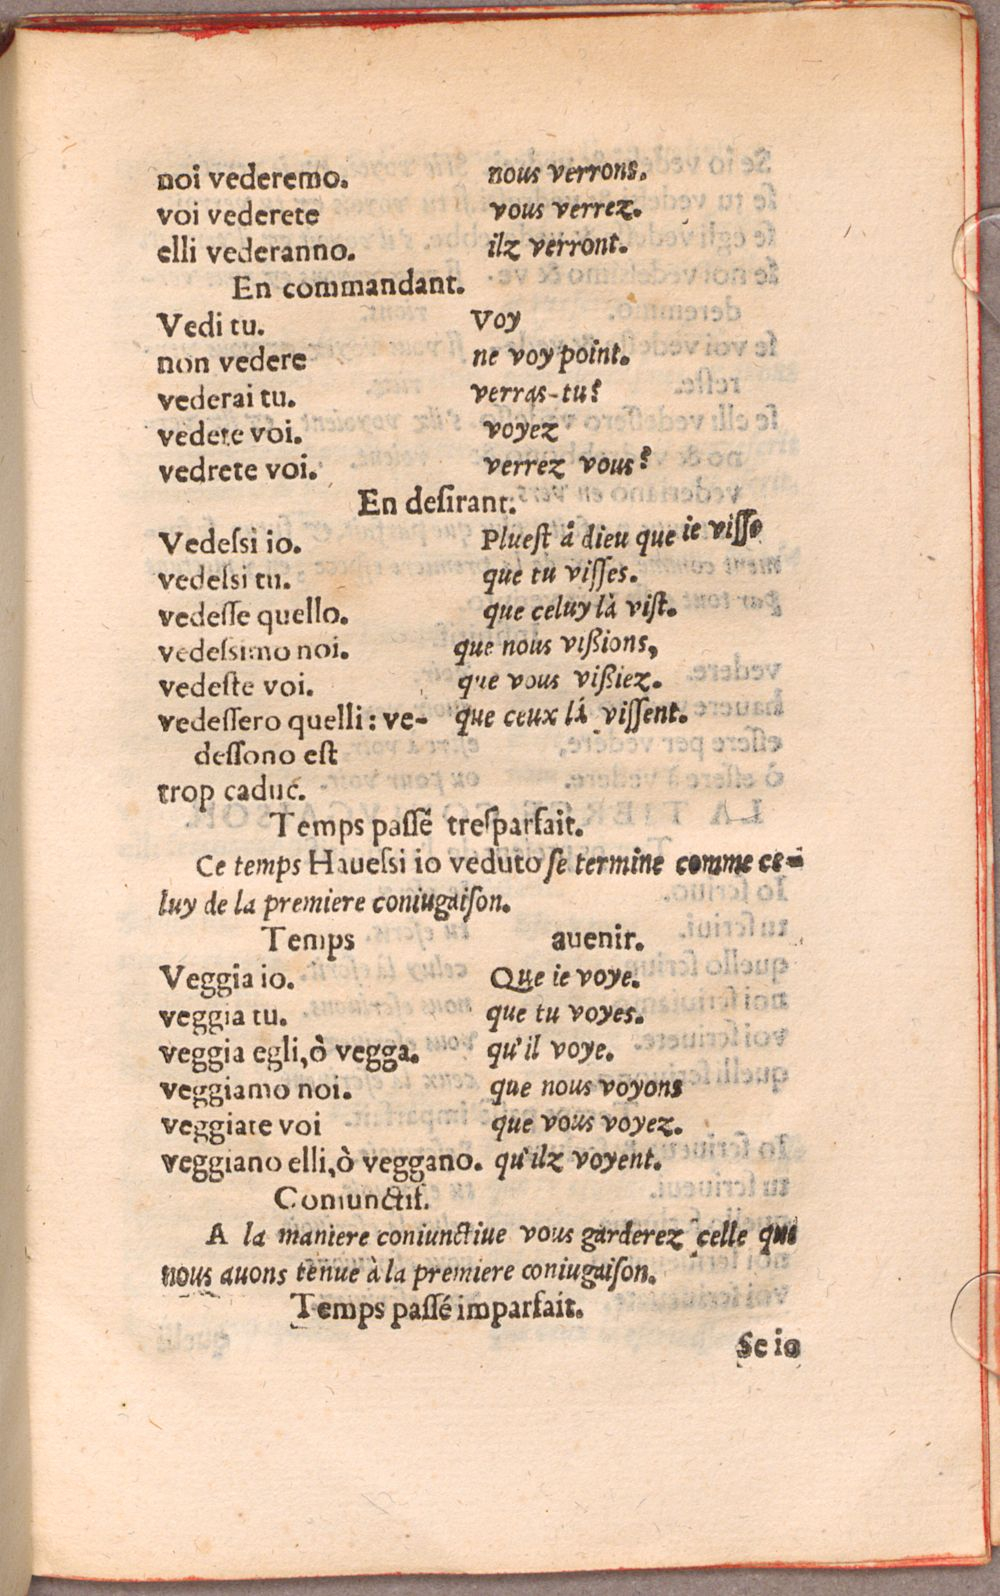 noi vederemo. nous verrons.
voi vederete vous verrez.
elli vederanno. ilz verront.
En commandant.
Vedi tu. Voy
non vedere ne voy point.
vederai tu. verras-tu?
vedete voi. voyez
vedrete voi. verrez vous?
En desirant.
Vedeſsi io. Plueſt à dieu que ie viſſe
vedeſsi tu. que tu viſſes.
vedeſſe quello. que celuy là viſt.
vedeſsimo noi. que nous vißions,
vedeſte voi. que vous vißiez.
vedeſſero quelli: ve- que ceux là viſſent.
deſſono eſt
trop caduc.
Temps paſſé treſparfait.
Ce temps Haueſsi io veduto ſe termine comme ce-
luy de la premiere coniugaiſon.
Temps auenir.
Veggia io. Que ie voye.
veggia tu. que tu voyes.
veggia egli, ò vegga. qu'il voye.
veggiamo noi. que nous voyons
veggiate voi que vous voyez.
veggiano elli, ò veggano. qu'ilz voyent.
Coniunctif.
A la maniere coniunctiue vous garderez celle que
nous auons tenue à la premiere coniugaiſon.
Temps paſſé imparfait.
Se io